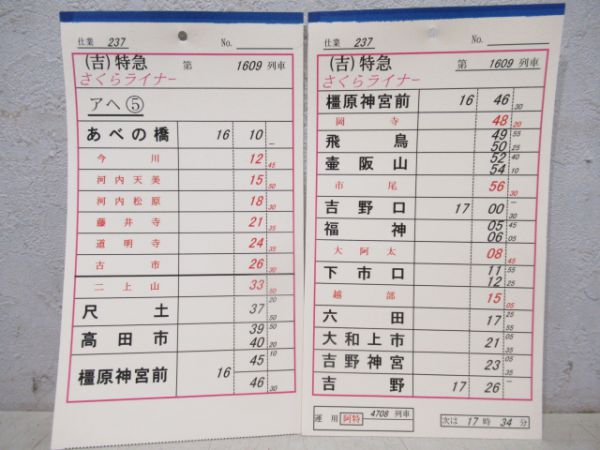 仕業 237 No.
(吉)特急 第 1609 列車
さくらライナー
アヘ⑤
あべの橋 16 10 —
今川 12 45
河内天美 15 50
河内松原 18 30
藤井寺 21 35
道明寺 24 35
古市 26 30
二上山 33 50
尺土 37 20 50
高田市 39 50 40 20
橿原神宮前 16 45 10 46 30
仕業 237 No.
(吉)特急 第 1609 列車
さくらライナー
橿原神宮前 16 46 30
岡寺 48 20
飛鳥 49 55 50 25
壷阪山 52 40 54 10
市尾 56 30
吉野口 17 00 — 30
福神 05 45 06 05
大阿太 08 45
下市口 11 55 12 25
越部 15 05
六田 17 25 55
大和上市 21 05 35
吉野神宮 23 05 35
吉野 17 26 —
運用 阿特 4708 列車 次は 17 時 34 分